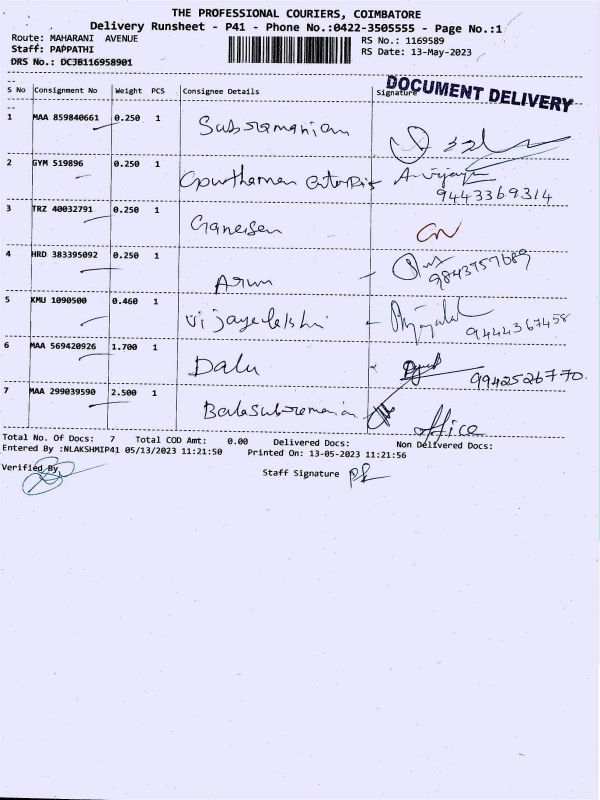 THE PROFESSIONAL COURIERS, COIMBATORE
Delivery Runsheet - P41 - Phone No.:0422-3505555 - Page No.:1
Route: MAHARANI AVENUE
RS No.: 1169589
Staff: PAPPATHI
RS Date: 13-May-2023
DRS No.: DCJB116958901
DOCUMENT DELIVERY
S No Consignment No Weight PCS Consignee Details Signature
1 MAA 859840661 0.250 1 Subramanian
2 GYM 519896 0.250 1 A. Vijaya
9443369314
3 TRZ 40032791 0.250 1 Ganesan
4 HRD 383395092 0.250 1 Arun
9843757689
5 KMU 1090500 0.460 1 Vijayalakshmi
9444367458
6 MAA 569420926 1.700 1 Dalu
9942526770.
7 MAA 299039590 2.500 1 Balasubramanian office
Total No. Of Docs: 7 Total COD Amt: 0.00 Delivered Docs: Non Delivered Docs:
Entered By :NLAKSHMIP41 05/13/2023 11:21:50 Printed On: 13-05-2023 11:21:56
Verified By
Staff Signature